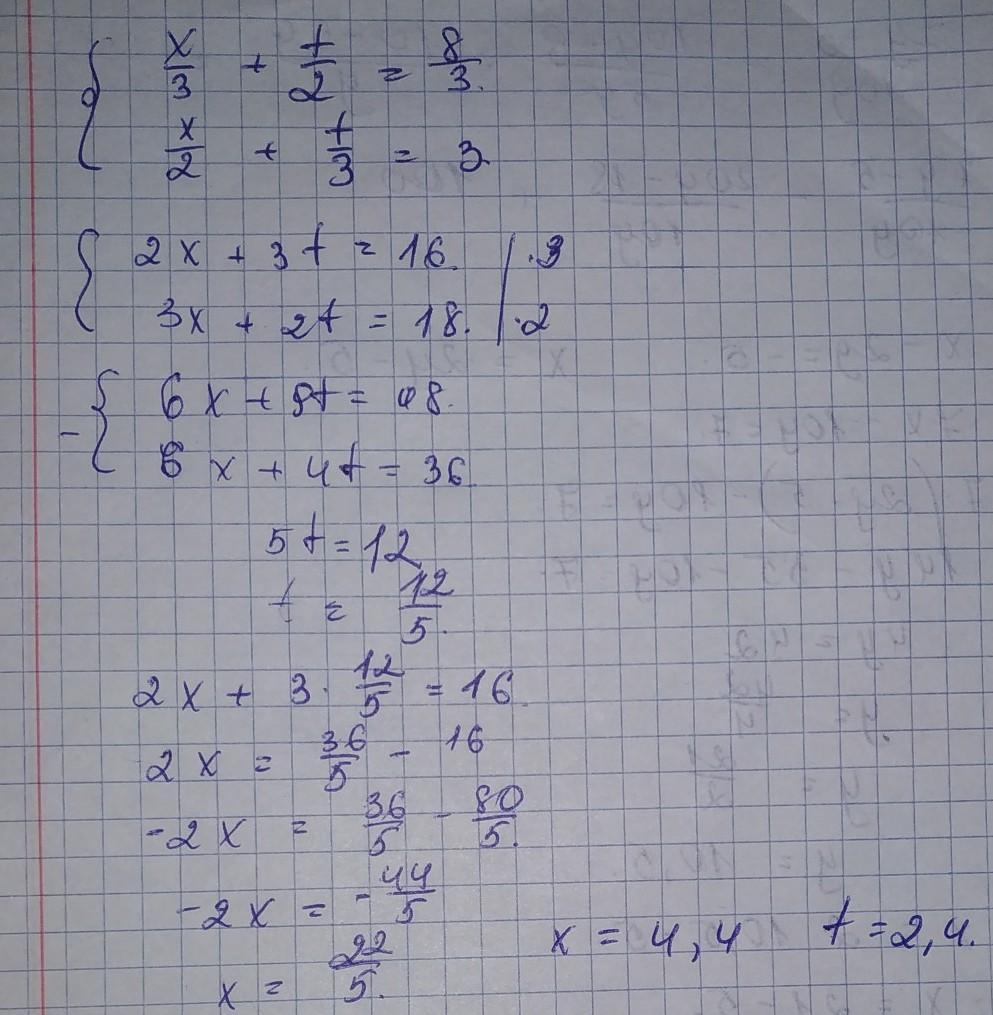 x/3 + t/2 = 8/3.
x/2 + t/3 = 3
2x + 3t = 16. | ·3
3x + 2t = 18. | ·2
- 6x + 9t = 48.
6x + 4t = 36
5t = 12
t = 12/5.
2x + 3 · 12/5 = 16
2x = 36/5 - 16
-2x = 36/5 - 80/5.
-2x = -44/5
x = 22/5.
x = 4,4 t = 2,4.